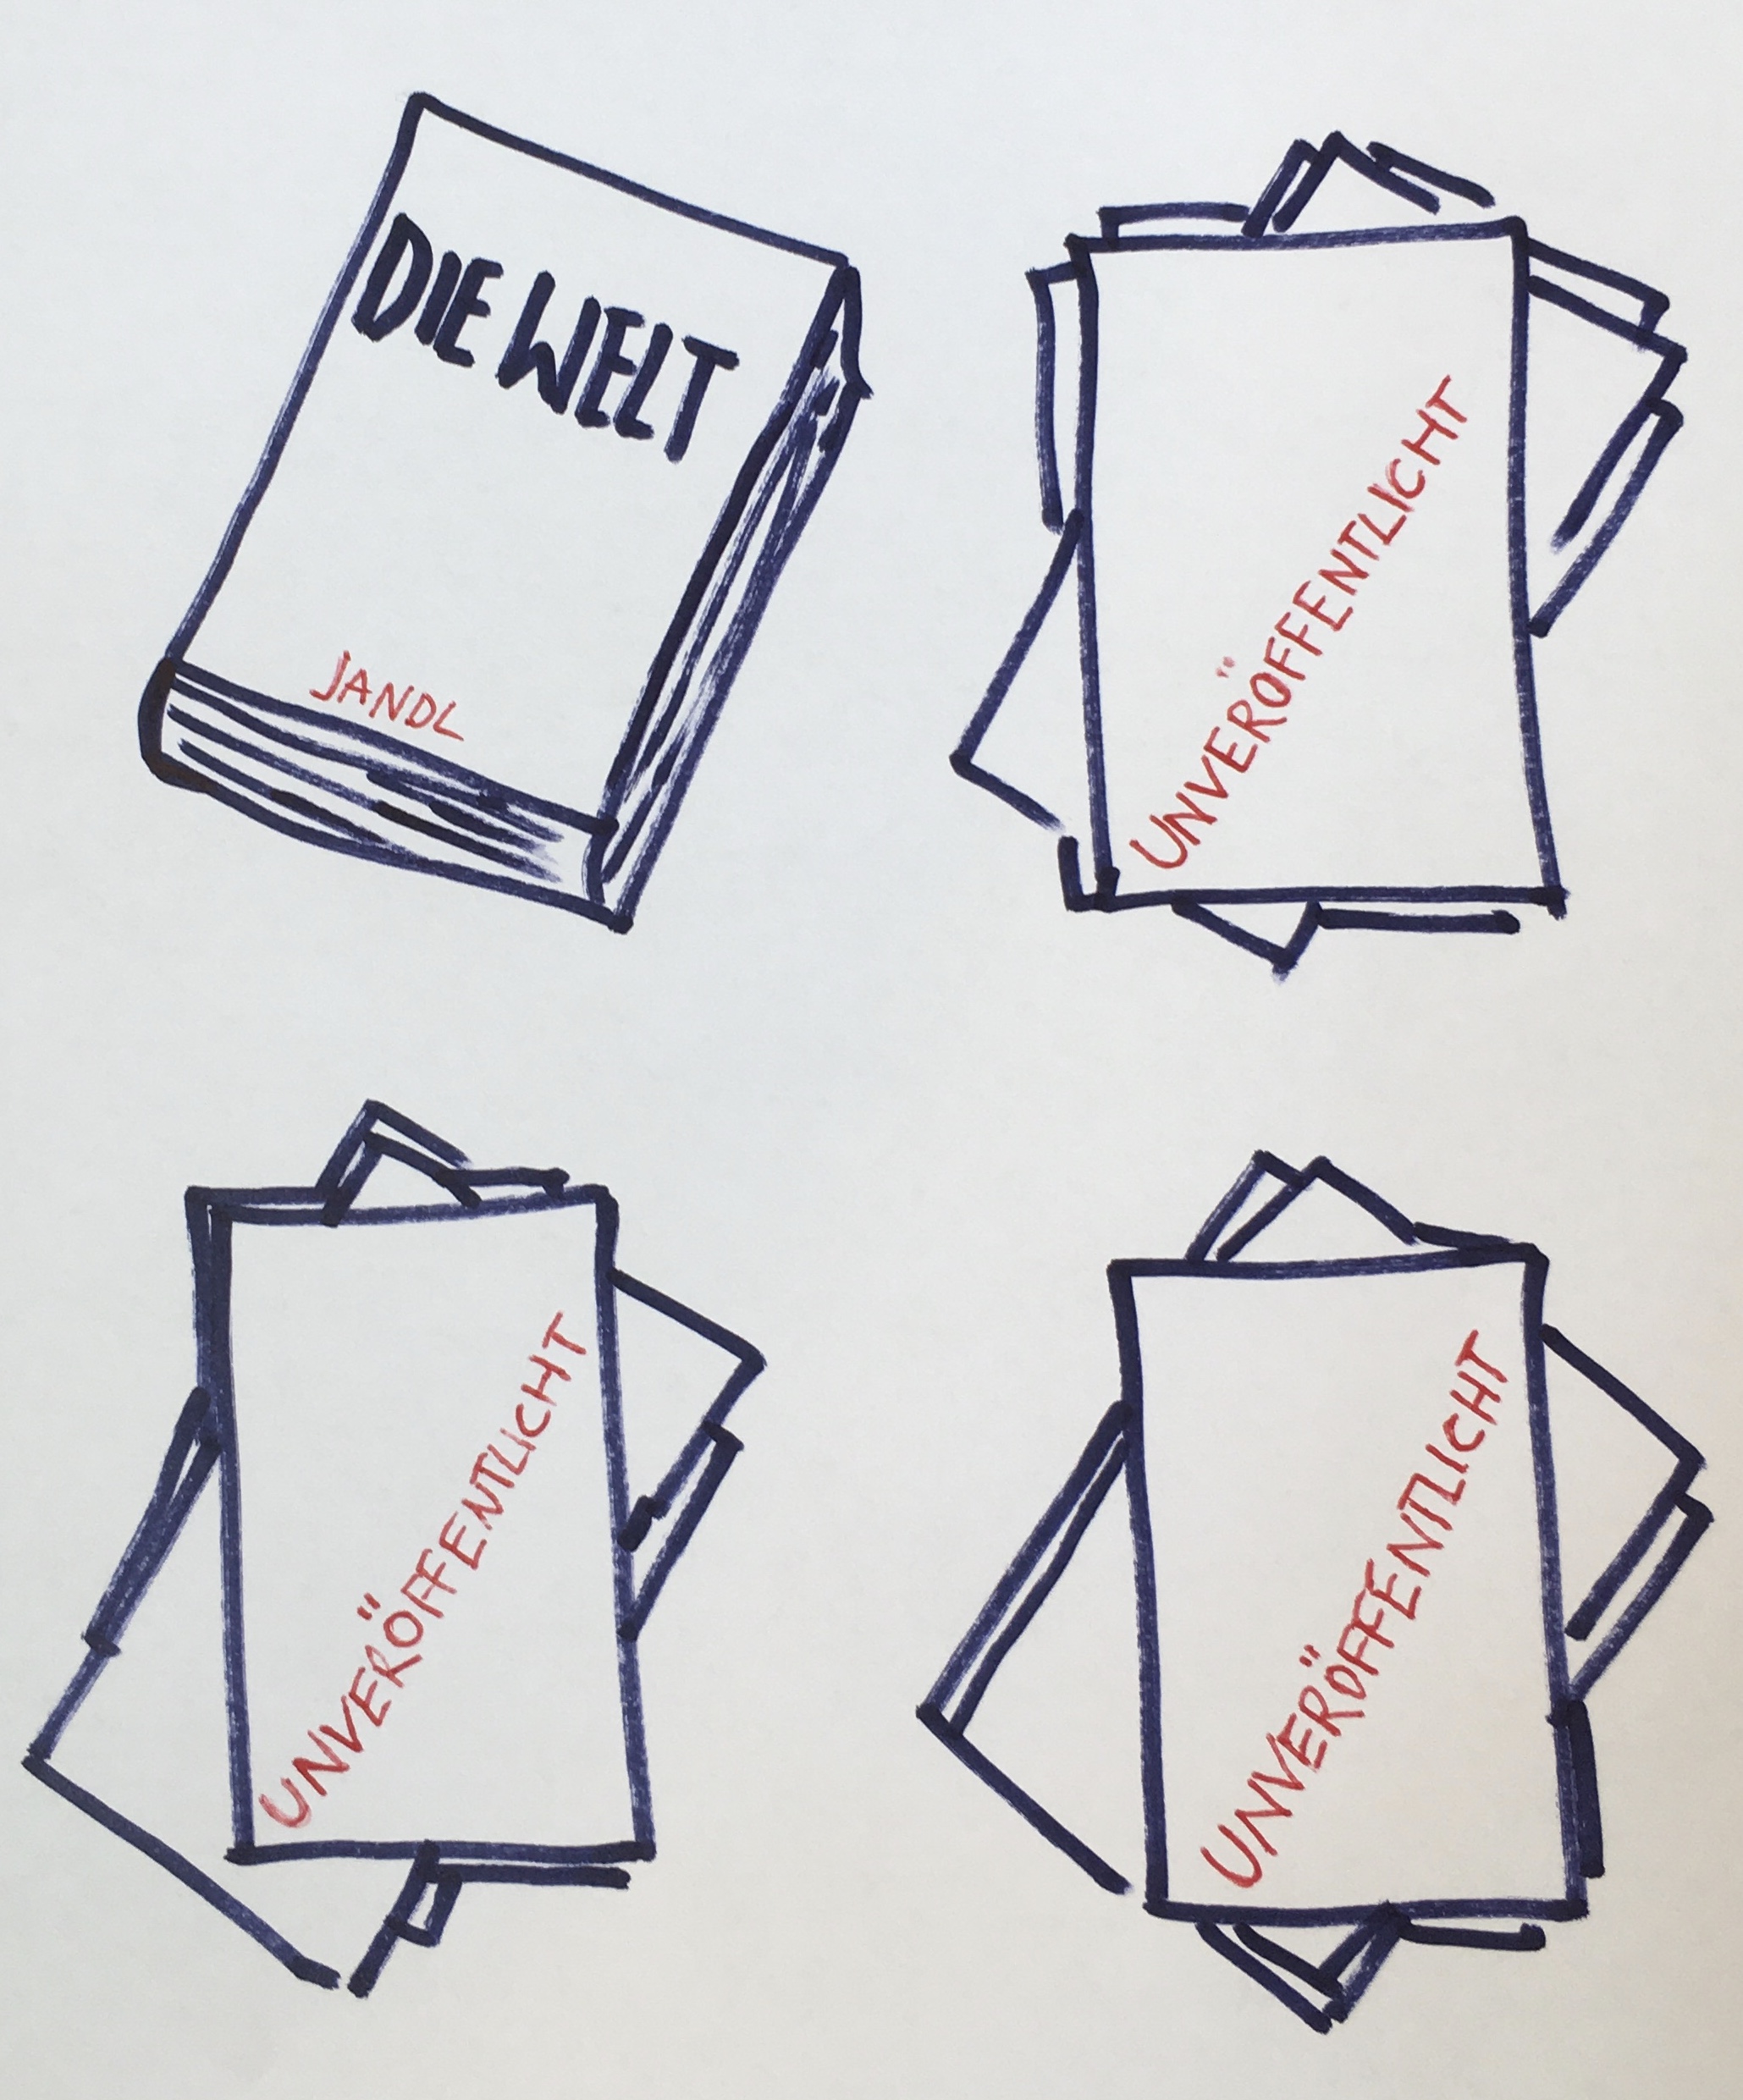 DIE WELT
JANDL
UNVERÖFFENTLICHT
UNVERÖFFENTLICHT
UNVERÖFFENTLICHT